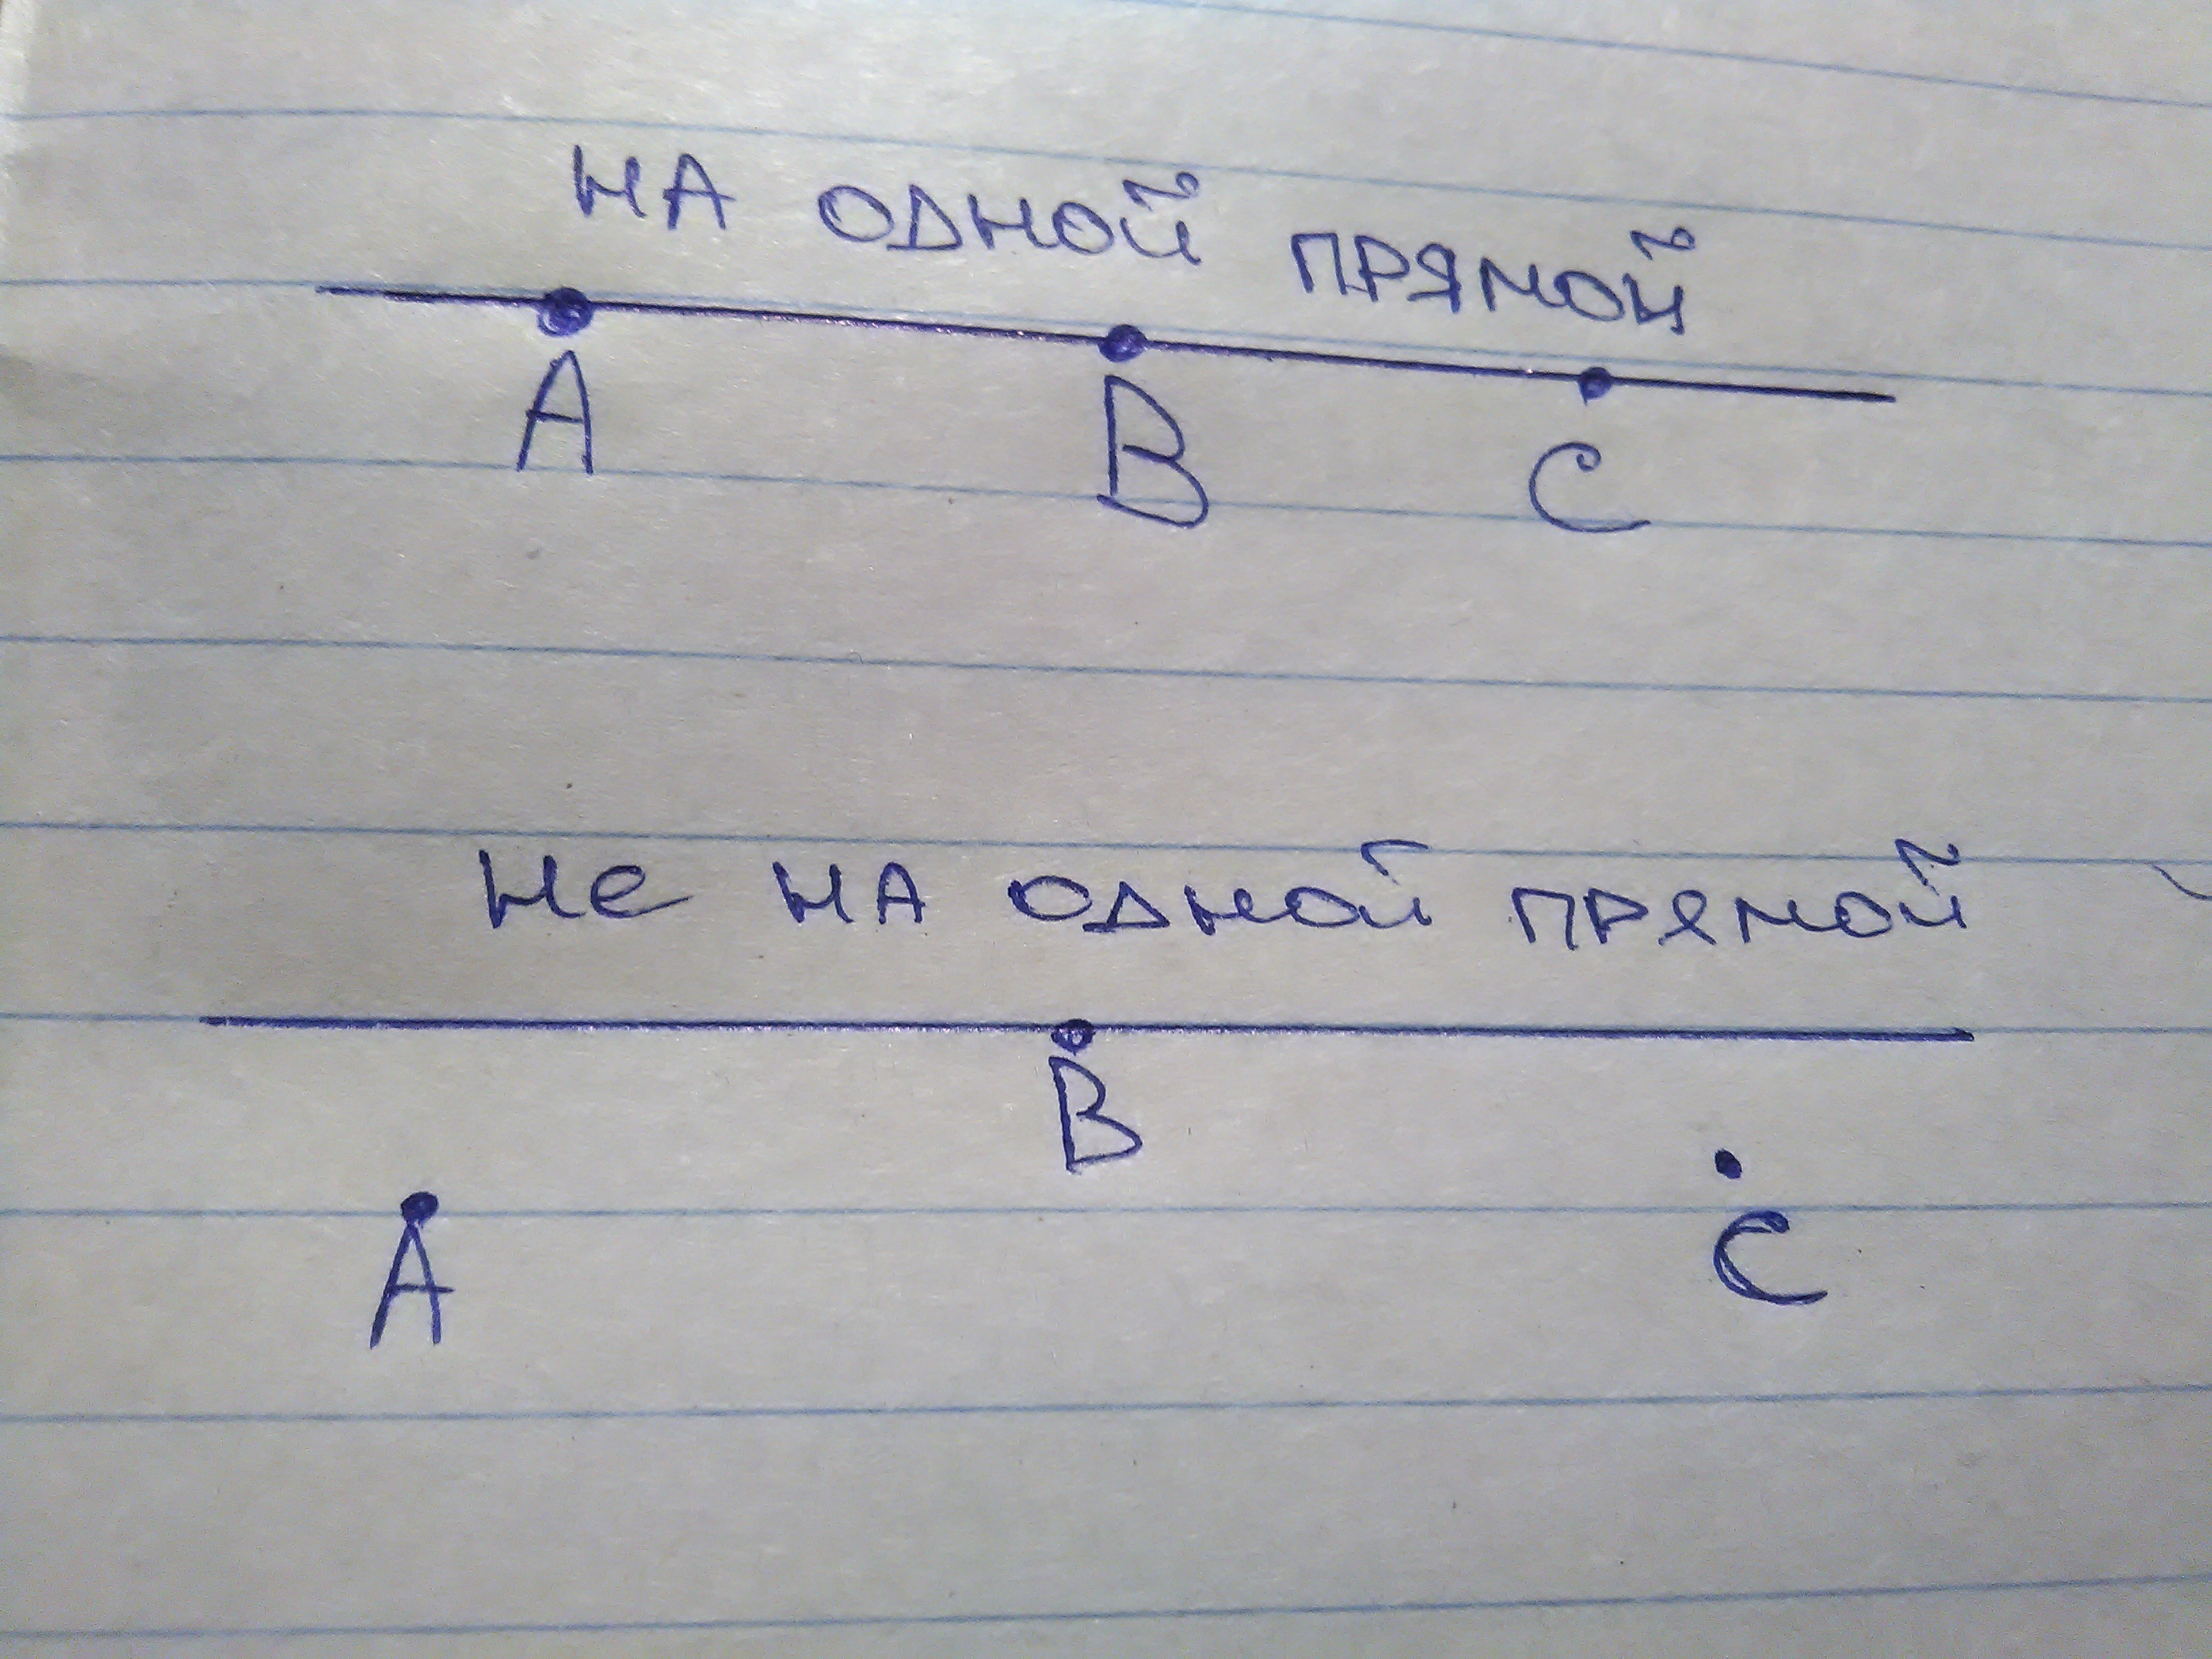 НА ОДНОЙ ПРЯМОЙ
A B C
НЕ НА ОДНОЙ ПРЯМОЙ
B
A C